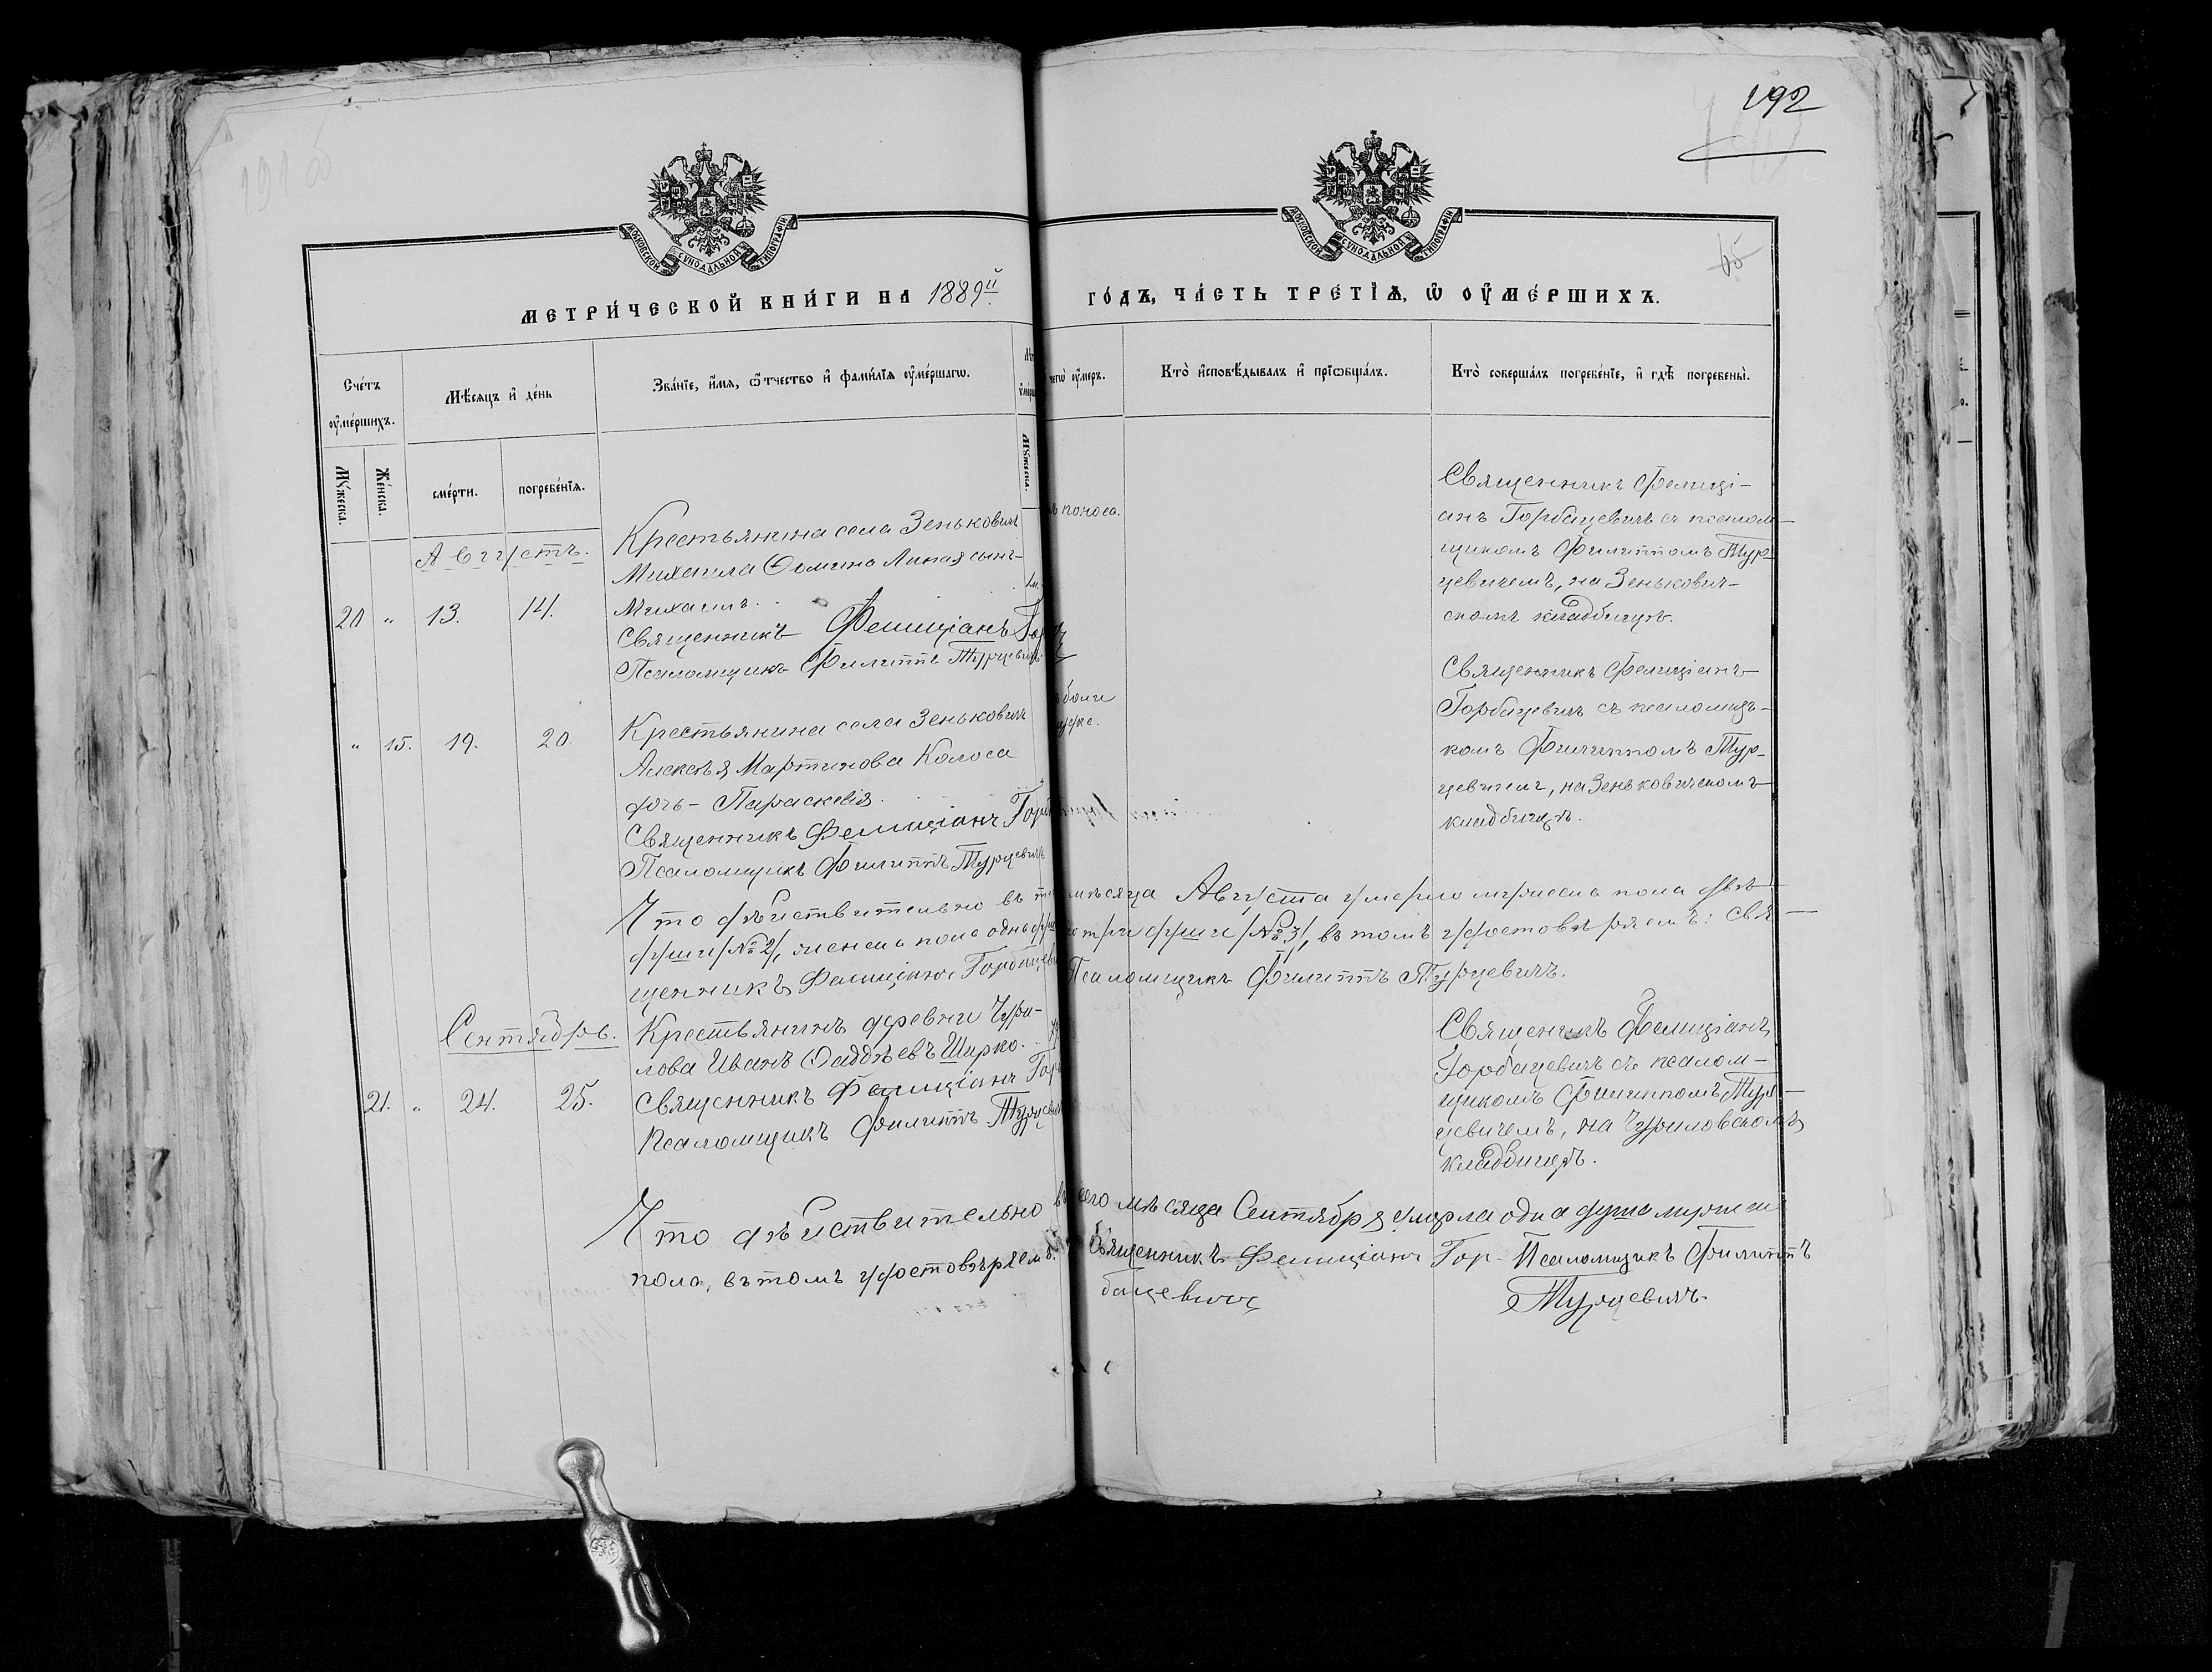 192
65
МОСКОВСКОЙ СУНОДАЛЬНОЙ ТИПОГРАФІИ
МОСКОВСКОЙ СУНОДАЛЬНОЙ ТИПОГРАФІИ
МЕТРИ́ЧЕСКОЙ КНИ́ГИ НА 1889й
ГО́ДЪ, ЧА́СТЬ ТРЕ́ТІѦ, Ѡ҆ ОУ҆МЕ́РШИХЪ.
Сче́тъ оу҆ме́ршихъ.
Мѣ́сѧцъ и҆ де́нь
Зва́нїе, и҆́мѧ, ѻ҆́тчество и҆ фами́лїѧ оу҆ме́ршагѡ.
чегѡ̀ оу҆́меръ.
Кто̀ и҆сповѣ́дывалъ и҆ прїѡбща́лъ.
Кто̀ соверша́лъ погребе́нїе, и҆ гдѣ̀ погребены̀.
Мꙋ́жеска.
Же́нска.
сме́рти.
погребе́нїѧ.
Мꙋ́жеска.
Августъ.
20 " 13. 14.
Крестьянина села Зеньковичъ
Михаила Ѳомина сынъ
Михаилъ.
Священникъ Фелиціанъ
Псаломщикъ Филиппъ Турцевичъ
поноса.
Священникъ Фелиці-
анъ Горбацевичъ съ псалом-
щикомъ Филиппомъ Тур-
цевичемъ, на Зенькович-
скомъ кладбищѣ.
" 15. 19. 20.
Крестьянина села Зеньковичъ
Алексѣя Мартинова Колоса
дочь – Параскевія.
Священникъ Фелиціанъ
Псаломщикъ Филиппъ Турцевичъ
боли
Священникъ Фелиціанъ
Горбацевичъ съ псаломщи-
комъ Филиппомъ Тур-
цевичемъ, на Зеньковичскомъ
кладбищѣ.
Что дѣйствительно въ мѣсяца Августа умерло мужеска пола двѣ
души /№ 2/, женска пола одна три души /№ 3/, въ томъ удостовѣряемъ: Свя-
щенникъ Фелиціанъ Псаломщикъ Филиппъ Турцевичъ.
Сентябрь.
21. " 24. 25.
Крестьянинъ деревни Чури-
лова Иванъ Ѳаддѣевъ Ширко.
Священникъ Фелиціанъ
Псаломщикъ Филиппъ Турцевичъ
Священикъ Фелиціанъ
Горбацевичъ съ псалом-
щикомъ Филиппомъ Тур-
цевичемъ, на Чуриловскомъ
кладбищѣ.
Что дѣйствительно сего мѣсяца Сентября умерла одна душа мужеска
пола, въ томъ удостовѣряемъ: Священникъ Фелиціанъ Гор- Псаломщикъ Филиппъ
бацевичъ Турцевичъ.